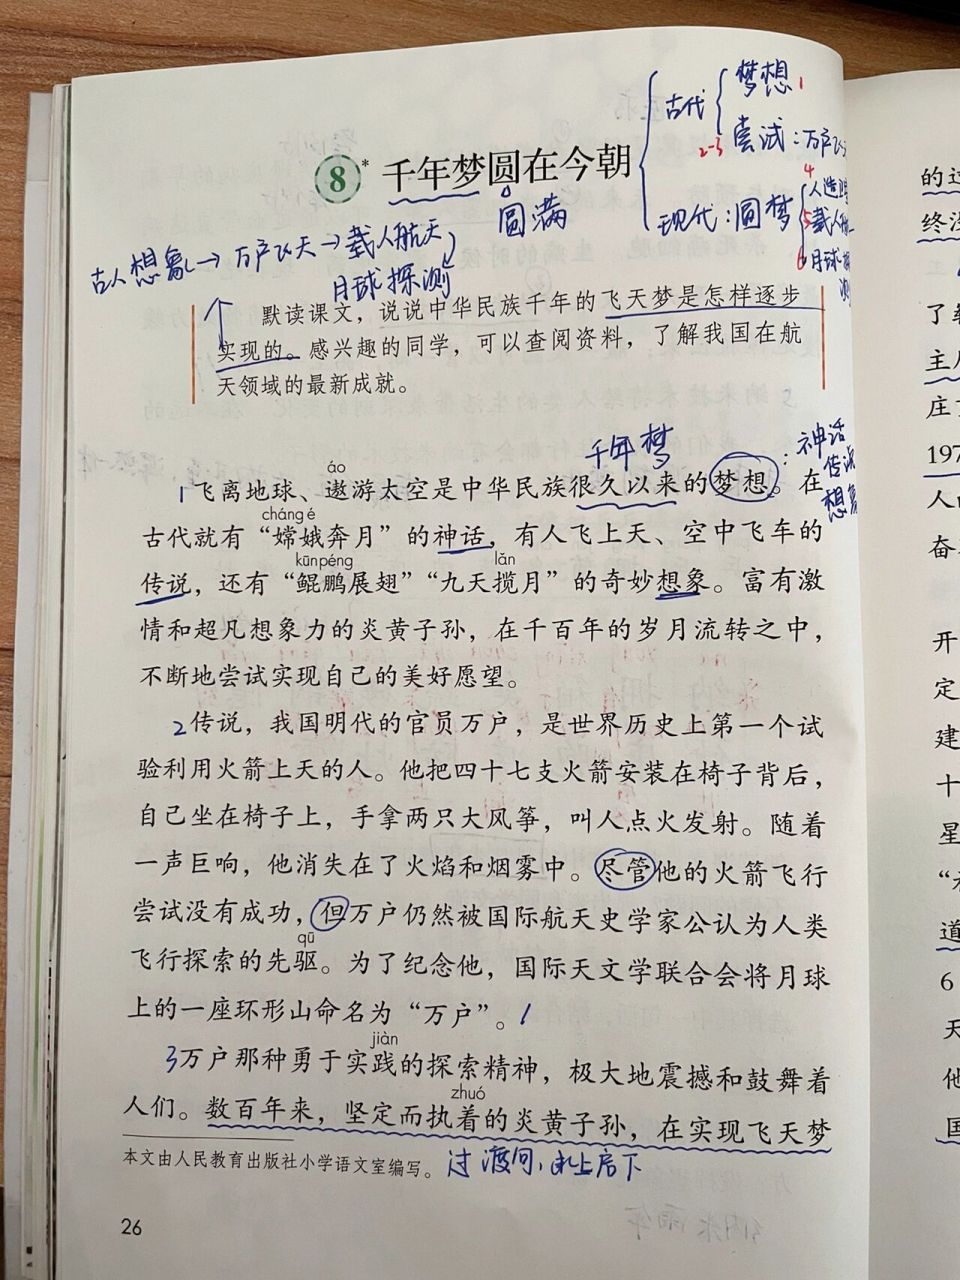 古代
梦想 1
2-3 尝试:万户飞天
现代:圆梦
4 人造
5 载人航
6 月球探测
8 * 千年梦圆在今朝
圆满
古人想象→万户飞天→载人航天
月球探测
默读课文，说说中华民族千年的飞天梦是怎样逐步
实现的。感兴趣的同学，可以查阅资料，了解我国在航
天领域的最新成就。
千年梦
:神话
传说
想象
áo
1飞离地球、遨游太空是中华民族很久以来的梦想。在
cháng é
古代就有“嫦娥奔月”的神话，有人飞上天、空中飞车的
kūnpéng lǎn
传说，还有“鲲鹏展翅”“九天揽月”的奇妙想象。富有激
情和超凡想象力的炎黄子孙，在千百年的岁月流转之中，
不断地尝试实现自己的美好愿望。
2传说，我国明代的官员万户，是世界历史上第一个试
验利用火箭上天的人。他把四十七支火箭安装在椅子背后，
自己坐在椅子上，手拿两只大风筝，叫人点火发射。随着
一声巨响，他消失在了火焰和烟雾中。尽管他的火箭飞行
尝试没有成功，但万户仍然被国际航天史学家公认为人类
qū
飞行探索的先驱。为了纪念他，国际天文学联合会将月球
上的一座环形山命名为“万户”。
jiàn
3万户那种勇于实践的探索精神，极大地震撼和鼓舞着
zhuó
人们。数百年来，坚定而执着的炎黄子孙，在实现飞天梦
本文由人民教育出版社小学语文室编写。
过渡句,承上启下
26
的过
终没
了载
主
庄
197
人
奋
开
定
建
十
星
道
6
天
他
国